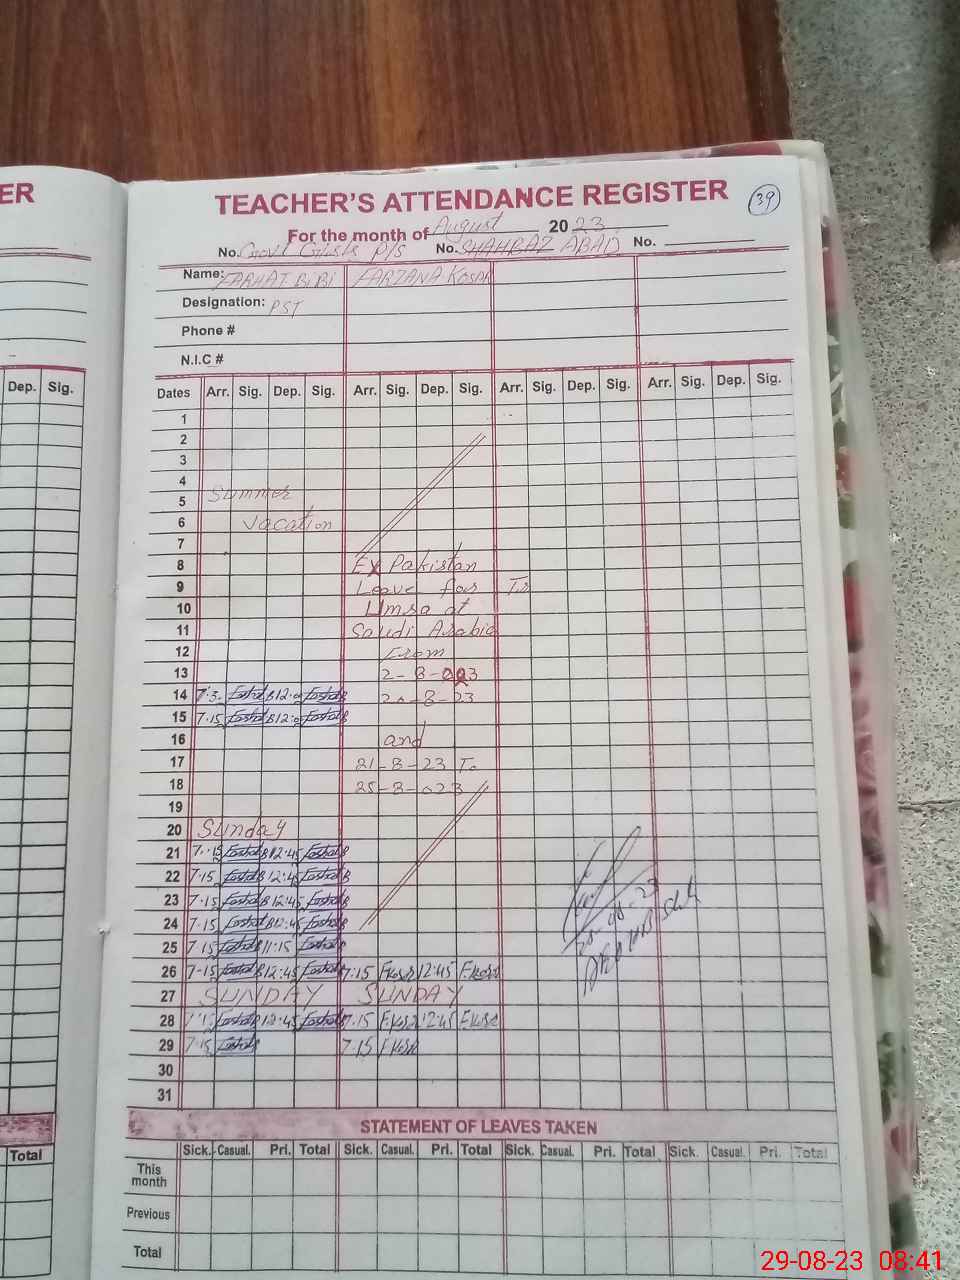 ER
TEACHER'S ATTENDANCE REGISTER
39
For the month of August 2023
No. Govt Girls P/S No. SHAHBAZ ABAD No.
Name: FARHAT BIBI FARZANA KOSAR
Designation: PST
Phone #
N.I.C #
Dep. Sig.
Dates Arr. Sig. Dep. Sig. Arr. Sig. Dep. Sig. Arr. Sig. Dep. Sig. Arr. Sig. Dep. Sig.
1
2
3
4
5 Summer
6 Vacation
7
8 Ex Pakistan
9 Leave for To
10 Umra at
11 Saudi Arabia
12 From
13 2-8-023
14 7:3 12:0 20-8-23
15 7-15 12:0
16 and
17 21-8-23 To
18 25-8-023
19
20 Sunday
21 7-15 12:45
22 7-15 12:45
23 7-15 12:45
24 7-15 12:45
25 7-15 11:15
26 7-15 12:45 7:15 F.Kosar 12:45 F.Kosar
27 SUNDAY SUNDAY
28 12:45 7:15 F.Kosar 12:45 F.Kosar
29 7-15 7-15 F.Kosar
30
31
STATEMENT OF LEAVES TAKEN
Total
Sick. Casual. Pri. Total Sick. Casual. Pri. Total Sick. Casual. Pri. Total Sick. Casual. Pri. Total
This month
Previous
Total
29-08-23 08:41